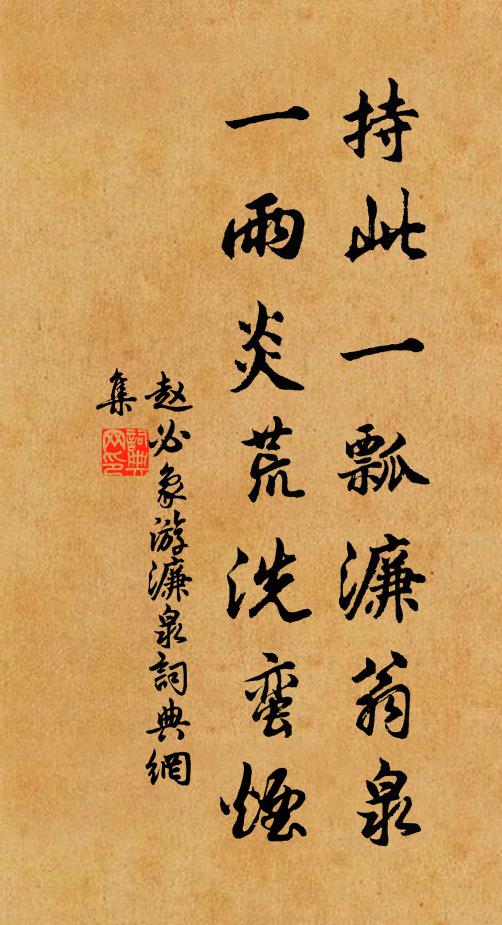 持此一瓢濂翁泉
一雨炎荒洗蛮煙
赵必象游濂泉詞典網
集
詞典
网印